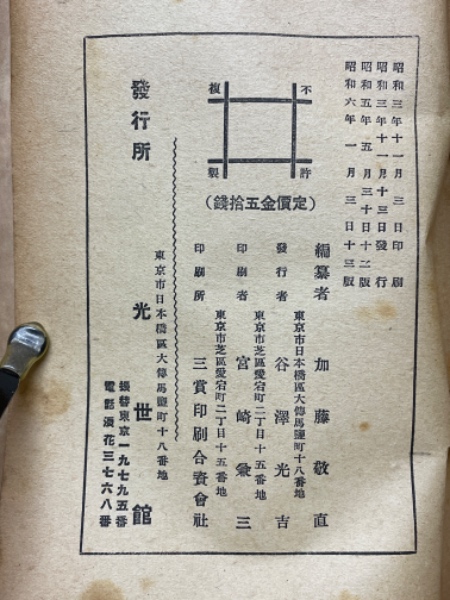 昭和三年十一月三日印刷
昭和三年十一月十三日發行
昭和五年五月三十日十二版
昭和六年一月三日十三版
不許
複製
(定價金五拾錢)
編纂者 加藤敬直
東京市日本橋區大傳馬鹽町十八番地
發行者 谷澤光吉
東京市芝區愛宕町二丁目十五番地
印刷者 宮崎榮三
東京市芝區愛宕町二丁目十五番地
印刷所 三賞印刷合資會社
東京市日本橋區大傳馬鹽町十八番地
發行所 光世館
振替東京一九七九五番
電話浪花三七六八番